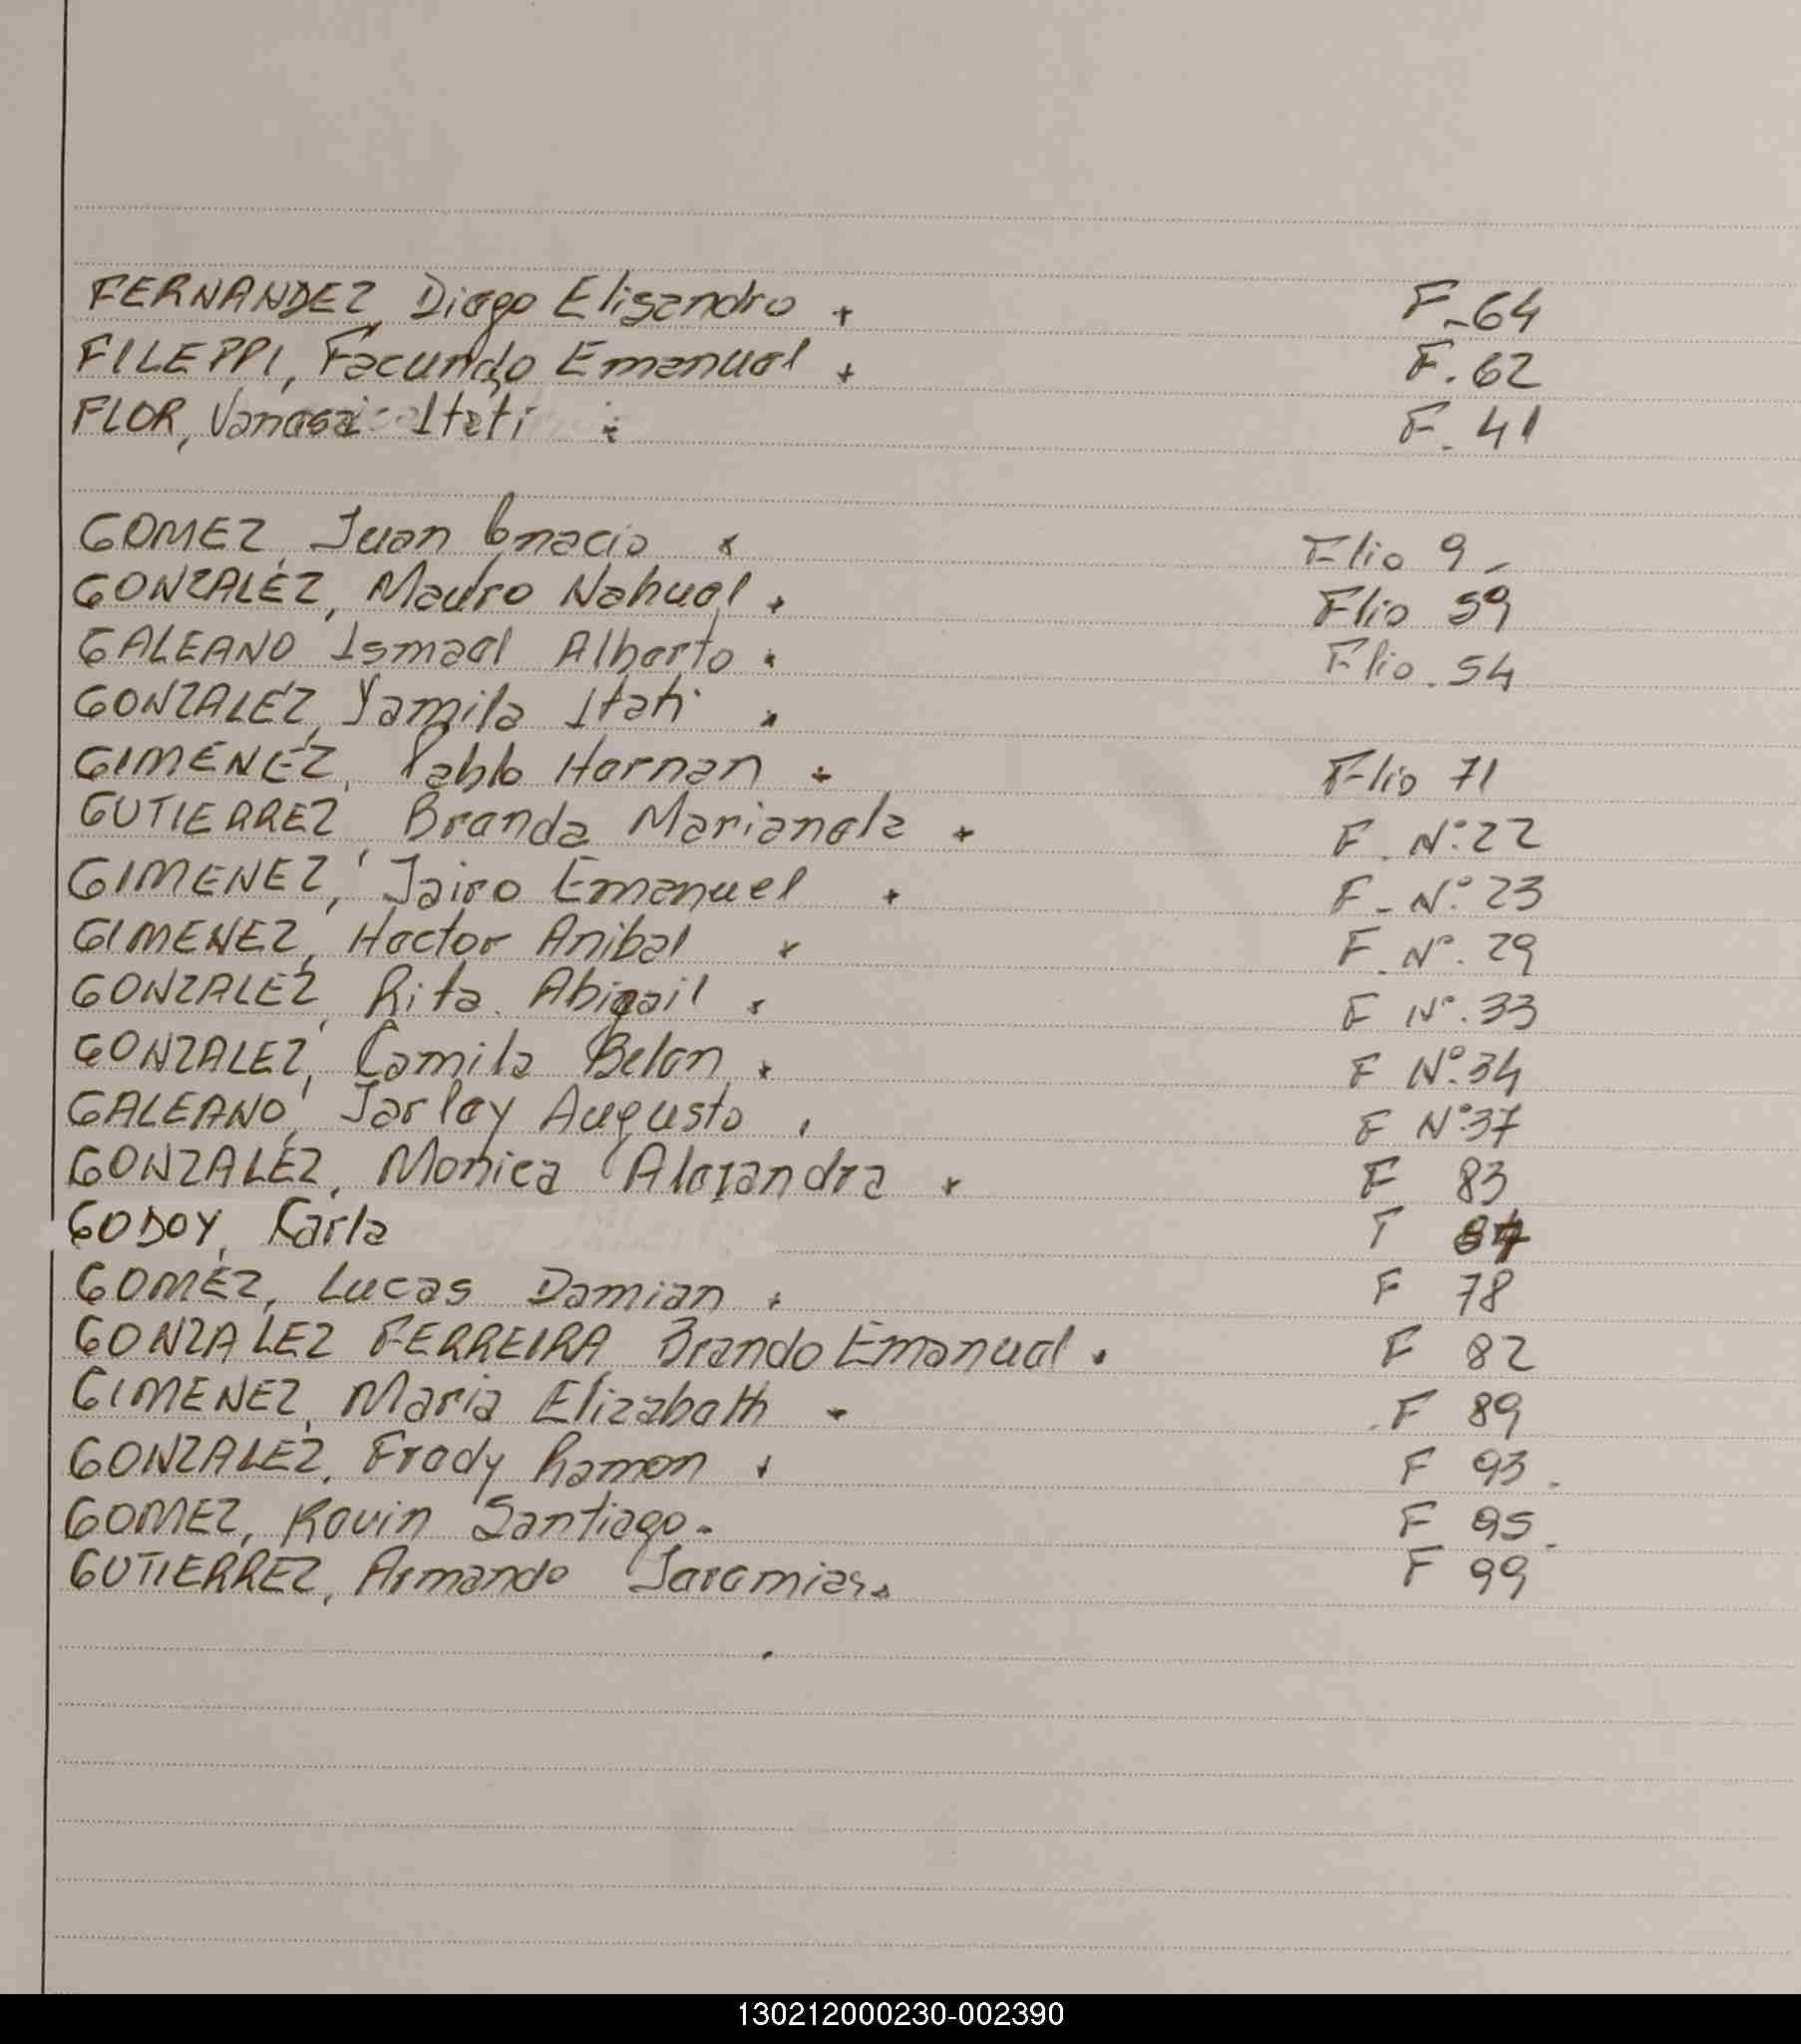 FERNANDEZ, Diego Elisandro + F-64
FILEPPI, Facundo Emanuel + F. 62
FLOR, Vanesa Itati F. 41
GOMEZ, Juan Ignacio x Flio 9-
GONZALEZ, Mauro Nahuel + Flio 59
GALEANO Ismael Alberto Flio. 54
GONZALEZ, Yamila Itati
GIMENEZ, Pablo Hernan + Flio 71
GUTIERREZ Brenda Marianela + F. Nº 22
GIMENEZ, Jairo Emanuel + F- Nº 23
GIMENEZ, Hector Anibal + F. Nº. 29
GONZALEZ, Rita Abigail F Nº. 33
GONZALEZ, Camila Belen + F Nº 34
GALEANO, Jarley Augusto F Nº 37
GONZALEZ, Monica Alejandra + F 83
GODOY, Karla F
GOMEZ, Lucas Damian + F 78
GONZALEZ FERREIRA Brando Emanuel. F 82
GIMENEZ, Maria Elizabeth F 89
GONZALEZ, Fredy Ramon + F 93.
GOMEZ, Kevin Santiago. F 95.
GUTIERREZ, Armando Jeremias. F 99
130212000230-002390